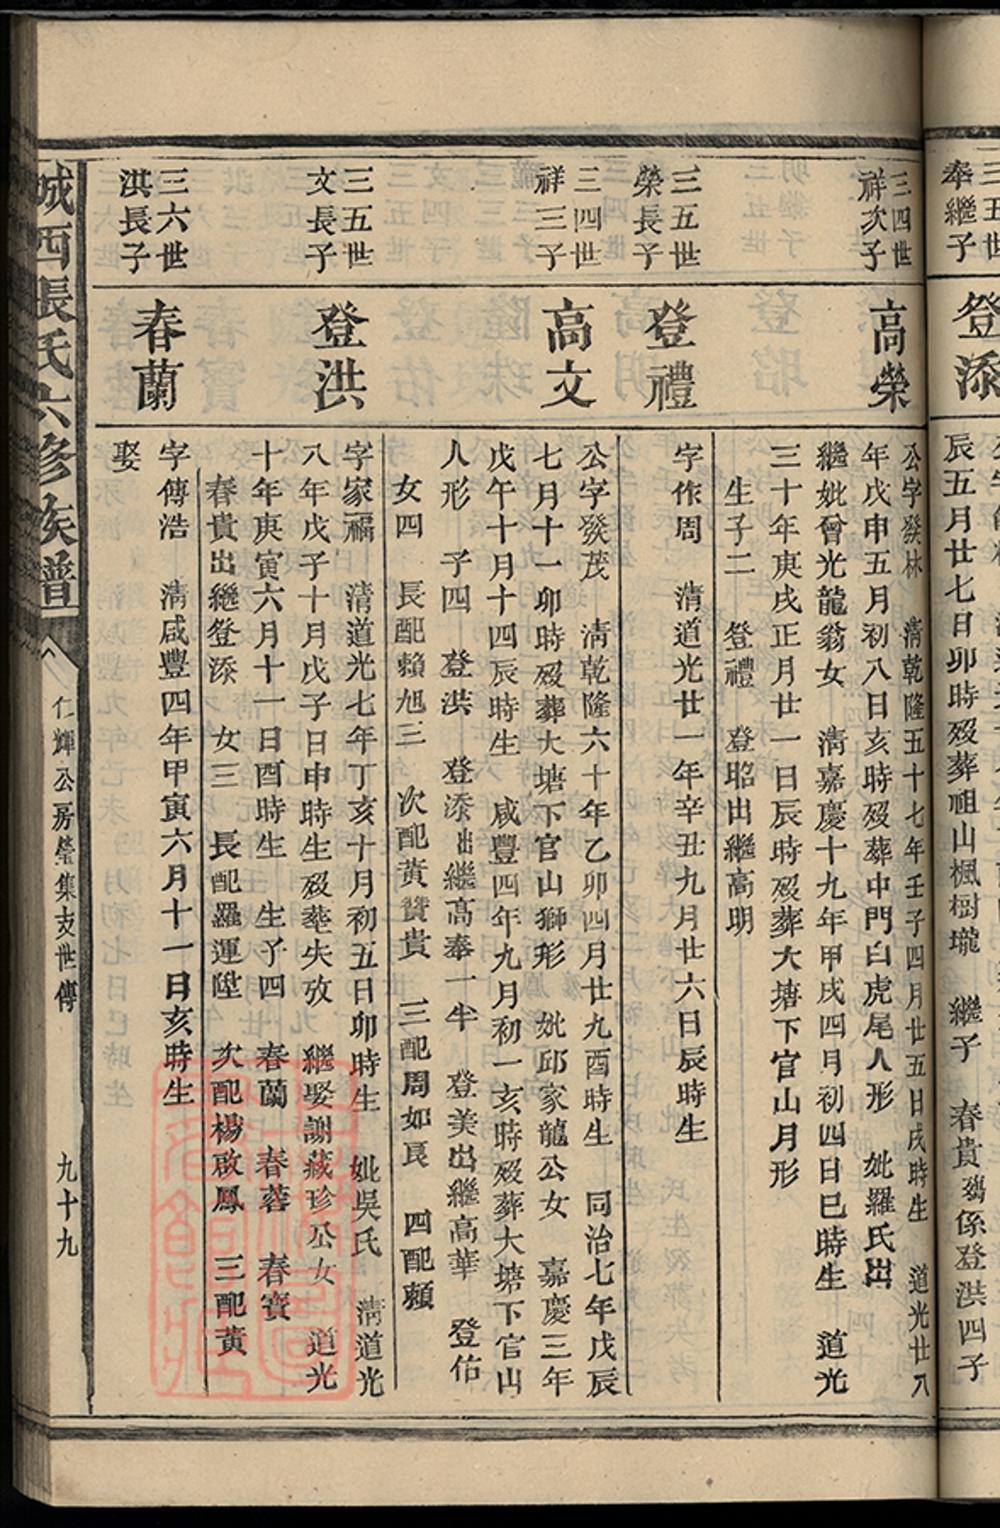 三五世
奉繼子
登添
辰五月廿七日卯時歿葬祖山楓樹壠　繼子　春貴係登洪四子
三四世
祥次子
高榮
公字發林　清乾隆五十七年壬子四月廿五日戌時生　道光廿八
年戊申五月初八日亥時歿葬中門白虎尾人形　妣羅氏出
繼妣曾光龍翁女　清嘉慶十九年甲戌四月初四日巳時生　道光
三十年庚戌正月廿一日辰時歿葬大塘下官山月形
生子二　登禮　登昭出繼高明
三五世
榮長子
登禮
字作周　清道光廿一年辛丑九月廿六日辰時生
三四世
祥三子
高文
公字發茂　清乾隆六十年乙卯四月廿九酉時生　同治七年戊辰
七月十一卯時歿葬大塘下官山獅形　妣邱家龍公女　嘉慶三年
戊午十月十四辰時生　咸豐四年九月初一亥時歿葬大塘下官山
人形　子四　登洪　登添出繼高奉一半　登美出繼高華　登佑
女四　長配賴旭三　次配黃贊貴　三配周如良　四配賴
三五世
文長子
登洪
字家福　清道光七年丁亥十月初五日卯時生　妣吳氏　清道光
八年戊子十月戊子日申時生歿葬失攷　繼娶謝藏珍公女　道光
十年庚寅六月十一日酉時生　生子四　春蘭　春蓉　春寶
春貴出繼登添　女三　長配羅運陞　次配楊啟鳳　三配黃
三六世
洪長子
春蘭
字傳浩　清咸豐四年甲寅六月十一日亥時生
娶
城西張氏六修族譜
仁輝公房瑩集支世傳
九十九